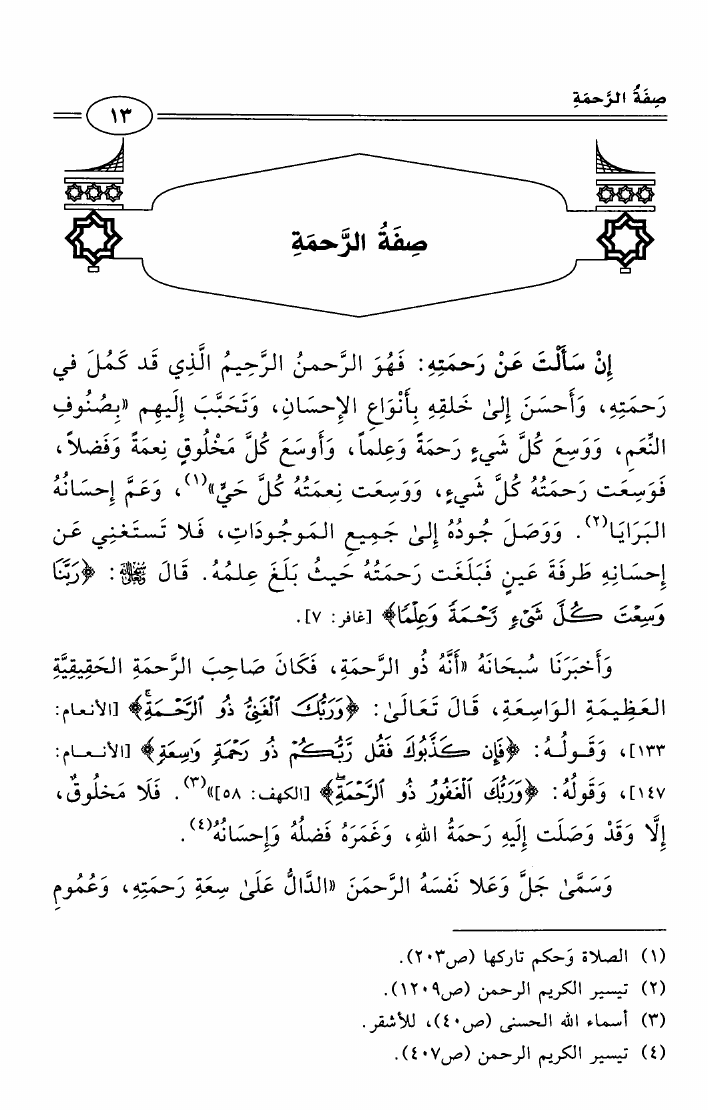 صِفَةُ الرَّحمَةِ
١٣
صِفَةُ الرَّحمَةِ
إِنْ سَأَلْتَ عَنْ رَحمَتِهِ: فَهُوَ الرَّحمنُ الرَّحِيمُ الَّذِي قَد كَمُلَ في
رَحمَتِهِ، وَأَحسَنَ إِلىٰ خَلقِهِ بِأَنْوَاعِ الإِحسَانِ، وَتَحَبَّبَ إِلَيهِم «بِصُنُوفِ
النِّعَمِ، وَوَسِعَ كُلَّ شَيءٍ رَحمَةً وَعِلماً، وَأَوسَعَ كُلَّ مَخْلُوقٍ نِعمَةً وَفَضلاً،
فَوَسِعَت رَحمَتُهُ كُلَّ شَيءٍ، وَوَسِعَت نِعمَتُهُ كُلَّ حَيٍّ»(١)، وَعَمَّ إِحسَانُهُ
البَرَايَا(٢). وَوَصَلَ جُودُهُ إِلىٰ جَمِيعِ المَوجُودَاتِ، فَلا تَستَغنِي عَن
إِحسَانِهِ طَرفَةَ عَينٍ فَبَلَغَت رَحمَتُهُ حَيثُ بَلَغَ عِلمُهُ. قَالَ ﷻ: ﴿رَبَّنَا
وَسِعْتَ كُلَّ شَىْءٍ رَّحْمَةً وَعِلْمًا﴾ [غافر: ٧].
وَأَخبَرَنَا سُبحَانَهُ «أَنَّهُ ذُو الرَّحمَةِ، فَكَانَ صَاحِبَ الرَّحمَةِ الحَقِيقِيَّةِ
العَظِيمَةِ الوَاسِعَةِ، قَالَ تَعَالَىٰ: ﴿وَرَبُّكَ ٱلْغَنِىُّ ذُو ٱلرَّحْمَةِۚ﴾ [الأنعام:
١٣٣]، وَقَولُهُ: ﴿فَإِن كَذَّبُوكَ فَقُل رَّبُّكُمْ ذُو رَحْمَةٍ وَٰسِعَةٍ﴾ [الأنعام:
١٤٧]، وَقَولُهُ: ﴿وَرَبُّكَ ٱلْغَفُورُ ذُو ٱلرَّحْمَةِۖ﴾ [الكهف: ٥٨]»(٣). فَلَا مَخلُوقٌ،
إِلَّا وَقَدْ وَصَلَت إِلَيهِ رَحمَةُ اللهِ، وَغَمَرَهُ فَضلُهُ وَإِحسَانُهُ(٤).
وَسَمَّىٰ جَلَّ وَعَلا نَفسَهُ الرَّحمَنَ «الدَّالُّ عَلَىٰ سِعَةِ رَحمَتِهِ، وَعُمُومِ
(١) الصلاة وَحكم تاركها (ص٢٠٣).
(٢) تيسير الكريم الرحمن (ص١٢٠٩).
(٣) أسماء الله الحسنى (ص٤٠)، للأشقر.
(٤) تيسير الكريم الرحمن (ص٤٠٧).